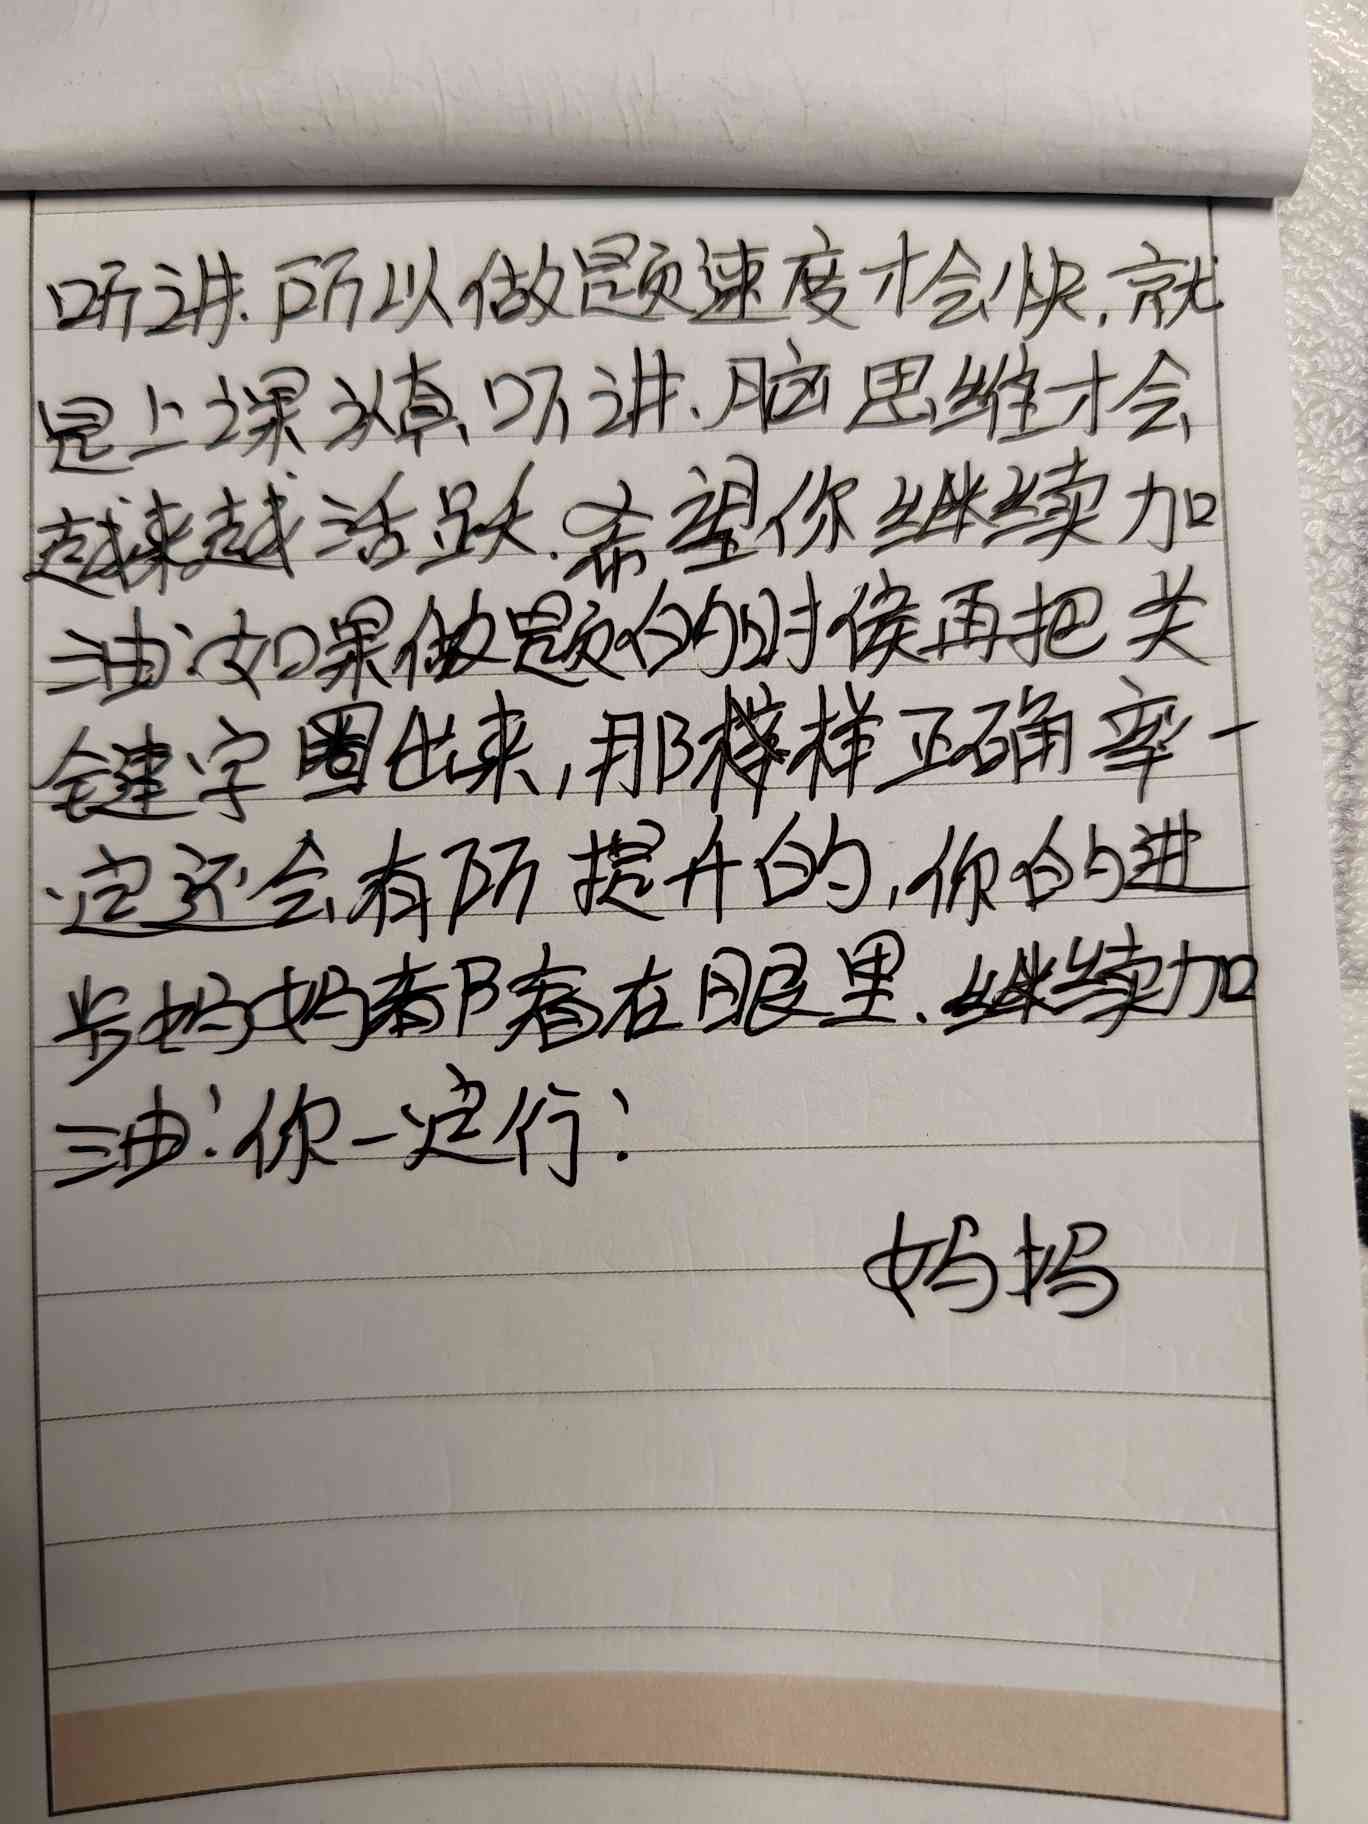 听讲.所以做题速度才会快.就
是上课认真、听讲、脑思维才会
越来越活跃.希望你继续加
油!如果做题的时候再把关
键字圈出来,那样样正确率一
定还会有所提升的,你的进
步妈妈都看在眼里.继续加
油!你一定行!
妈妈